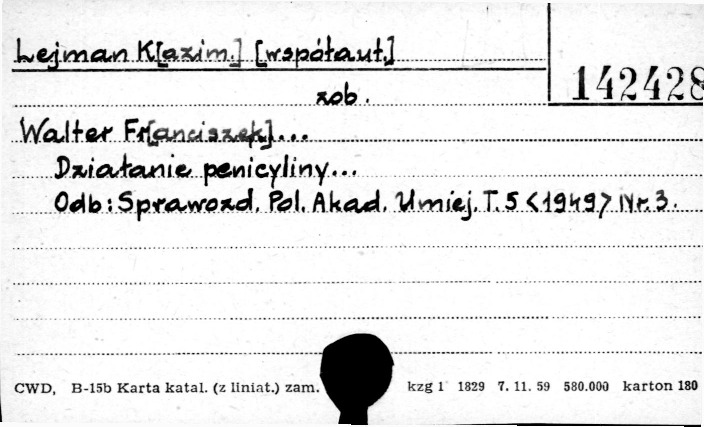 Lejman K[azim.] [współaut.]
142428
zob.
Walter Fr[anciszek]...
Działanie penicyliny...
Odb: Sprawozd. Pol. Akad. Umiej. T. 5 <1949> Nr. 3.
CWD, B-15b Karta katal. (z liniat.) zam. kzg 1 1829 7. 11. 59 580.000 karton 180